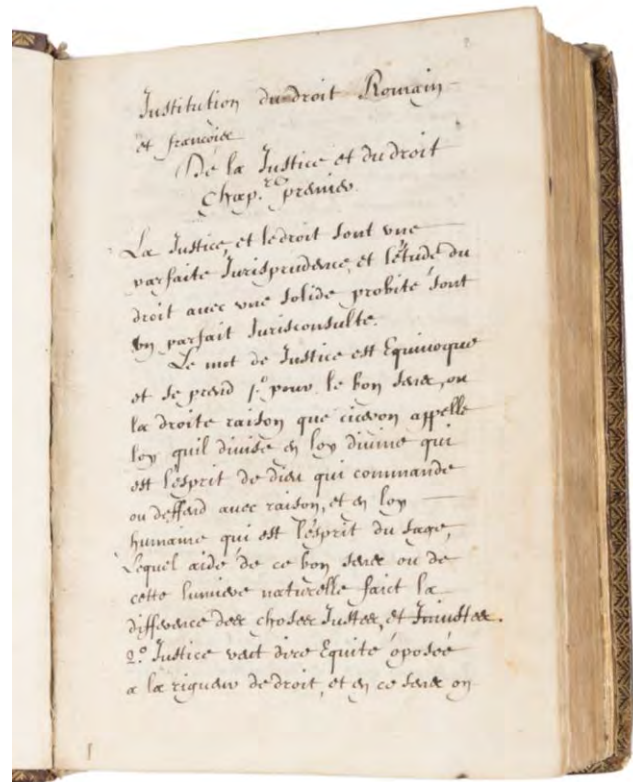 Institution du droit Romain
et francois
De la Justice et du droit
Chap.re premier.
La Justice, et le droit sont vne
parfaite Jurisprudence, et l'étude du
droit auec vne solide probité sont
vn parfait Jurisconsulte.
Le mot de Justice est Equiuoque
et se prend 1.o pour le bon sens, ou
la droite raison que ciceron appelle
loy quil diuise en loy diuine qui
est l'esprit de dieu qui commande
ou deffend auec raison, et en loy
humaine qui est l'esprit du sage,
Lequel aidé de ce bon sens ou de
cette lumiere naturelle faict la
difference des choses Justes, et Injustes.
2.o Justice veut dire Equité óposée
a la rigueur de droit, et en ce sens on